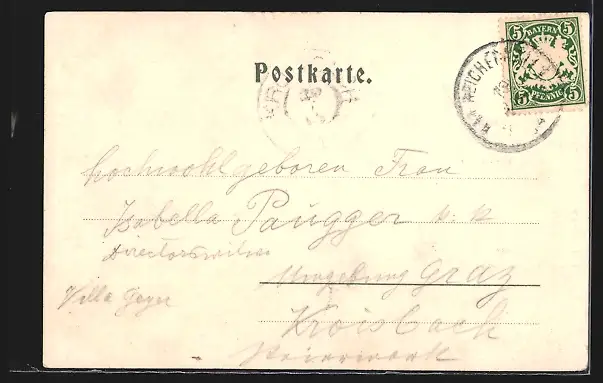 5 BAYERN 5
5 PFENNIG 5
Postkarte.
Hochwohlgeboren Frau
Isabella Paugger k. k.
Directorswitwe
Umgebung Graz
Villa Geyer
Kroisbach
Steiermark